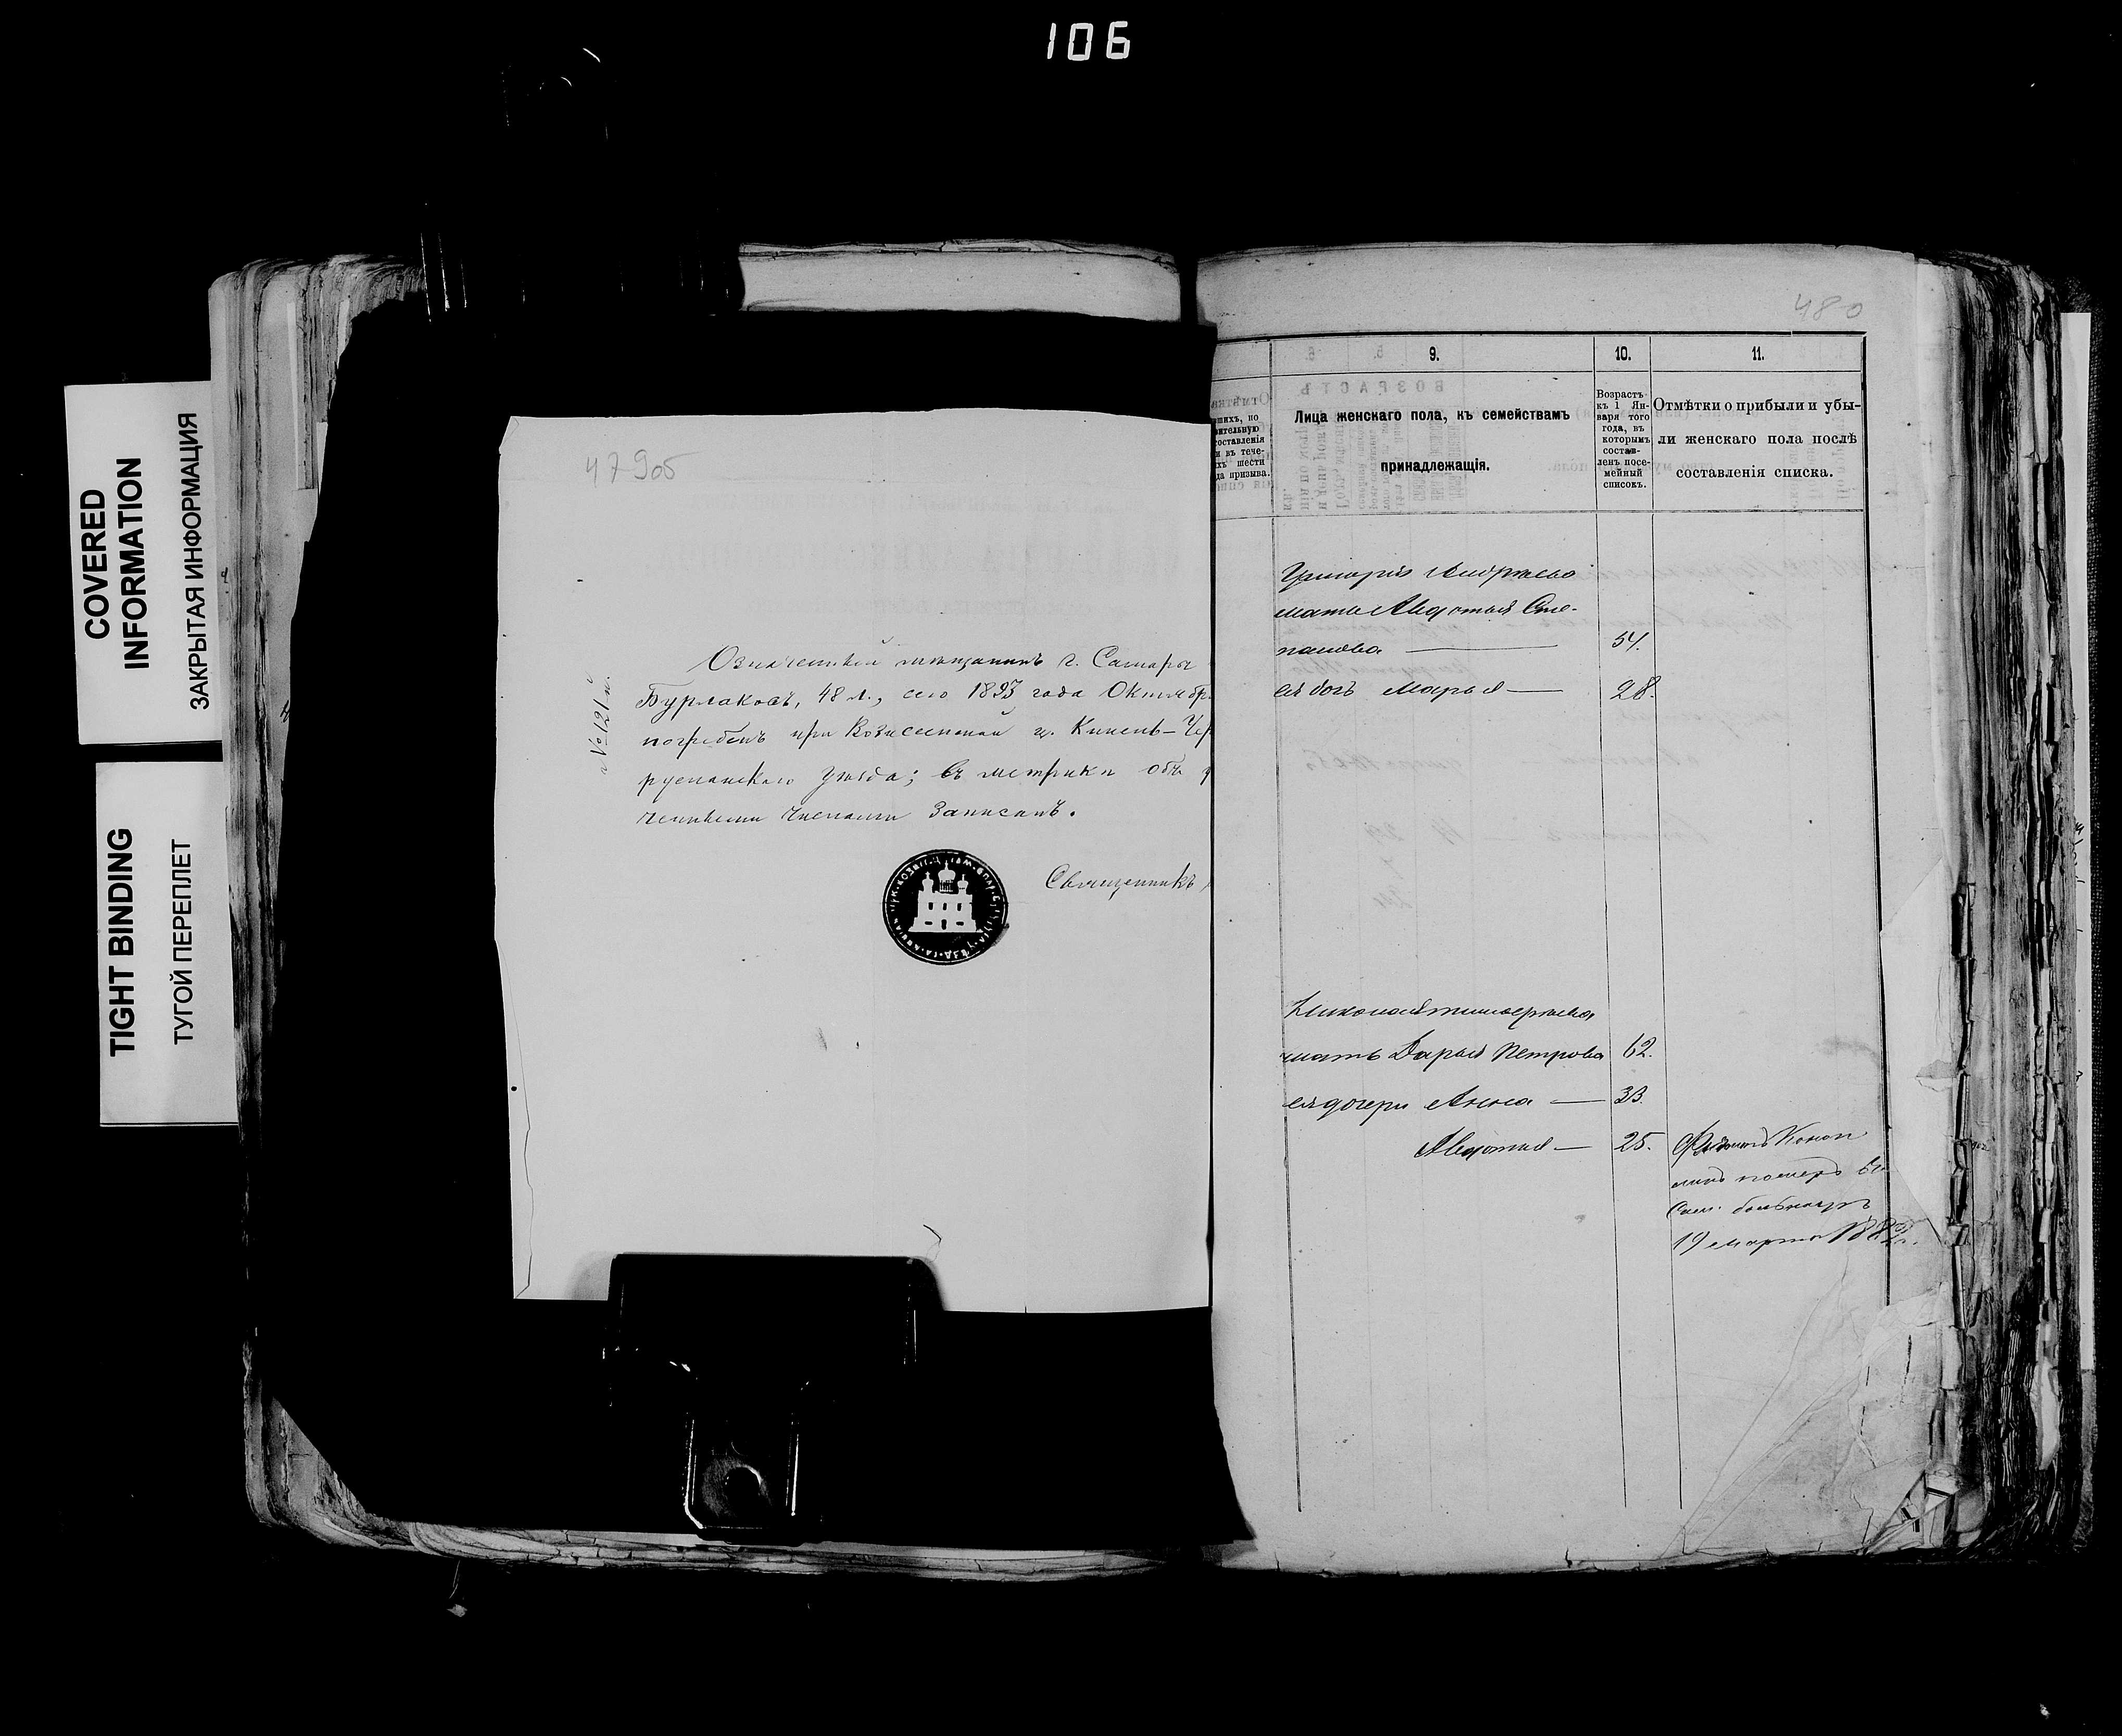 106
COVERED
INFORMATION
ЗАКРЫТАЯ ИНФОРМАЦИЯ
TIGHT BINDING
ТУГОЙ ПЕРЕПЛЕТ
47 об
№ 121й.
Означенный мещанинъ г. Самары
Бурлаковъ, 48 л., сего 1893 года Октябр
погребенъ при Вознесенской ц. Кинель-Чер
русланскаго уѣзда; въ метрики объ
численнымъ записанъ.
Священникъ
480
9.
10.
11.
шихъ, по
вительную
составленія
и въ тече-
хъ шести
да призыва.
Лица женскаго пола, къ семействамъ
принадлежащія.
Возрастъ
къ 1 Ян-
варя того
года, въ
которымъ
состав-
ленъ посе-
мейный
списокъ.
Отмѣтки о прибыли и убы-
ли женскаго пола послѣ
составленія списка.
Григорія Андреева
мать Авдотья Сте-
панова 54.
ея дочь Марья 28.
мать Дарья Петрова 62.
ея дочери Анна 33.
Авдотья 25.
Конон
линъ померъ въ
Сам. больницѣ
19 марта